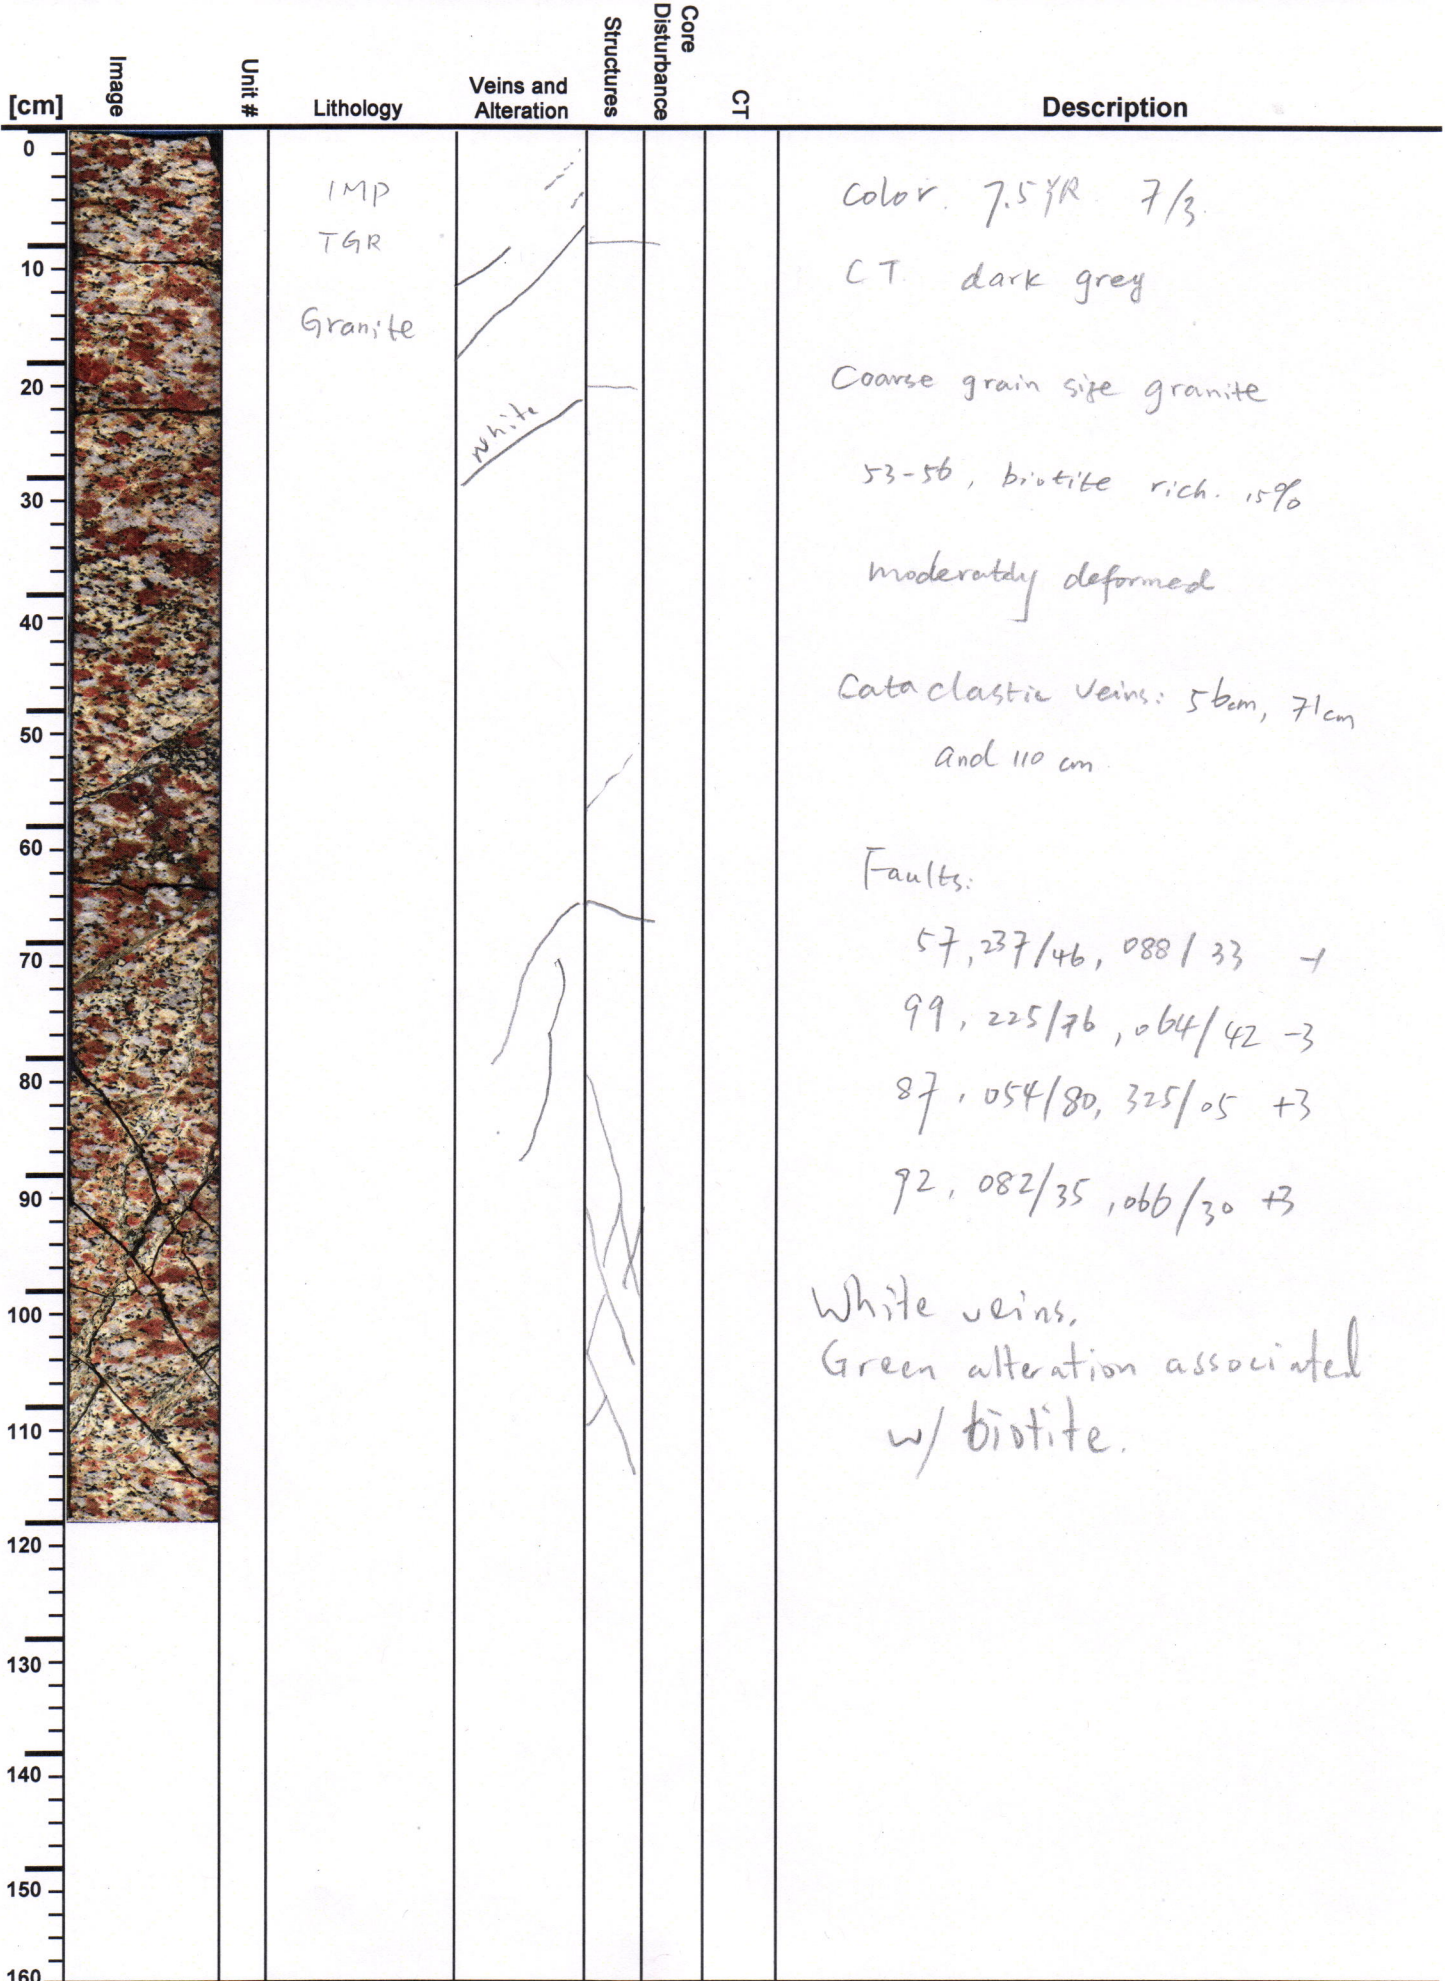 [cm]
Image
Unit #
Lithology
Veins and
Alteration
Structures
Core
Disturbance
CT
Description
0
10
20
30
40
50
60
70
80
90
100
110
120
130
140
150
160
IMP
TGR
Granite
White
Color. 7.5YR 7/3
CT. dark grey
Coarse grain size granite
53-56, biotite rich. 15%
moderatdy deformed
Cataclastic veins: 56cm, 71cm
and 110 cm
Faults:
57, 237/46, 088/33
99, 225/76, 064/42 -3
87, 054/80, 325/05 +3
92, 082/35, 066/30 +3
White veins.
Green alteration associated
w/ biotite.